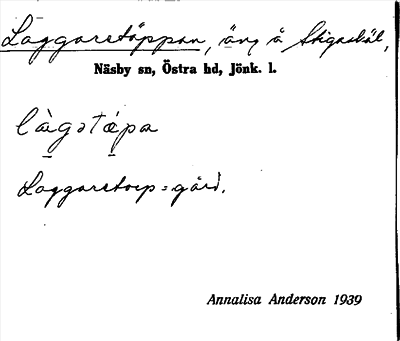 Laggarstäppan, äng å Stigaskäl,
Näsby sn, Östra hd, Jönk. l.
làgətǽpa
Laggarstorp = gård.
Annalisa Anderson 1939